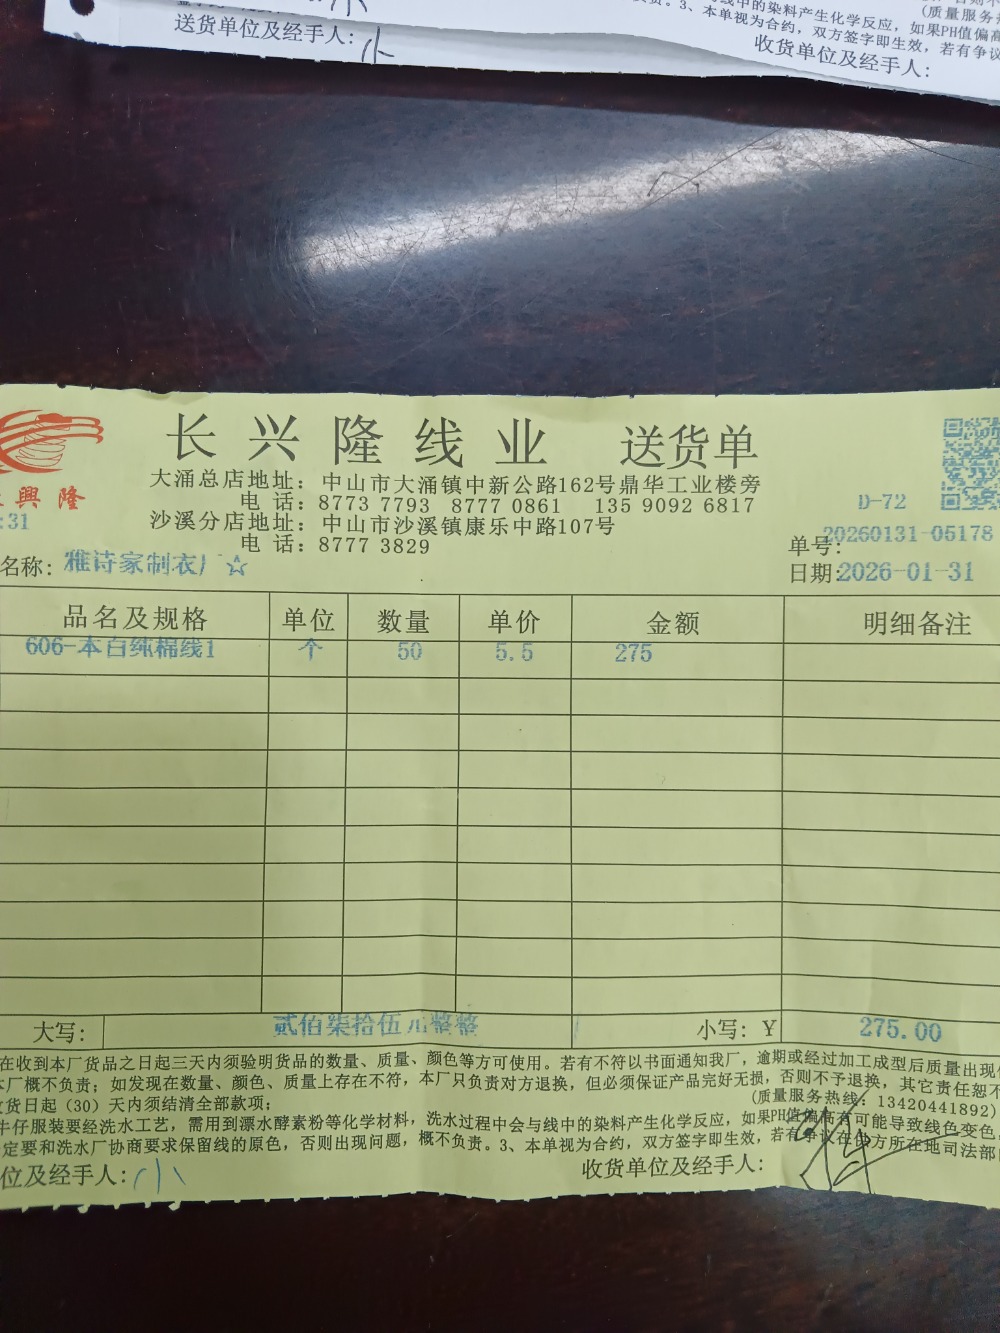 送货单位及经手人:小
线中的染料产生化学反应，如果PH值偏高
3、本单视为合约，双方签字即生效，若有争议
(质量服务
收货单位及经手人:
长兴隆线业 送货单
興隆
大涌总店地址：中山市大涌镇中新公路162号鼎华工业楼旁
电话：8773 7793 8777 0861 135 9092 6817
沙溪分店地址：中山市沙溪镇康乐中路107号
电话：8777 3829
:31
D-72
单号: 20260131-05178
名称: 雅诗家制衣厂☆
日期:2026-01-31
品名及规格 单位 数量 单价 金额 明细备注
606-本白纯棉线1 个 50 5.5 275
大写: 贰佰柒拾伍元整整 小写: ¥ 275.00
在收到本厂货品之日起三天内须验明货品的数量、质量、颜色等方可使用。若有不符以书面通知我厂，逾期或经过加工成型后质量出现
本厂概不负责；如发现在数量、颜色、质量上存在不符，本厂只负责对方退换，但必须保证产品完好无损，否则不予退换，其它责任恕不
货日起（30）天内须结清全部款项；
(质量服务热线：13420441892)
牛仔服装要经洗水工艺，需用到漂水酵素粉等化学材料，洗水过程中会与线中的染料产生化学反应，如果PH值偏高有可能导致线色变色，
定要和洗水厂协商要求保留线的原色，否则出现问题，概不负责。3、本单视为合约，双方签字即生效，若有争议在 方所在地司法部
位及经手人:小
收货单位及经手人: